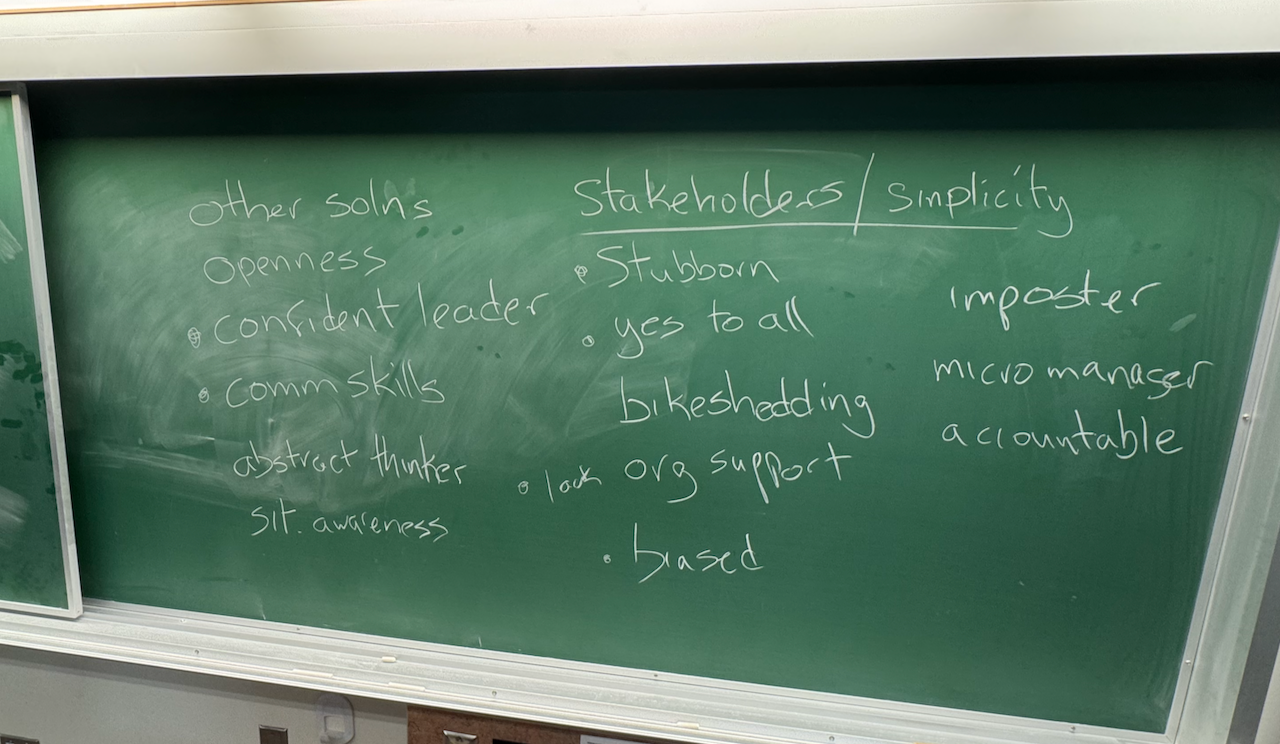 other solns
openness
• confident leader
• comm skills
abstract thinker
sit. awareness
Stakeholders / simplicity
• Stubborn
• yes to all
bikeshedding
• lack org support
• biased
imposter
micro manager
accountable